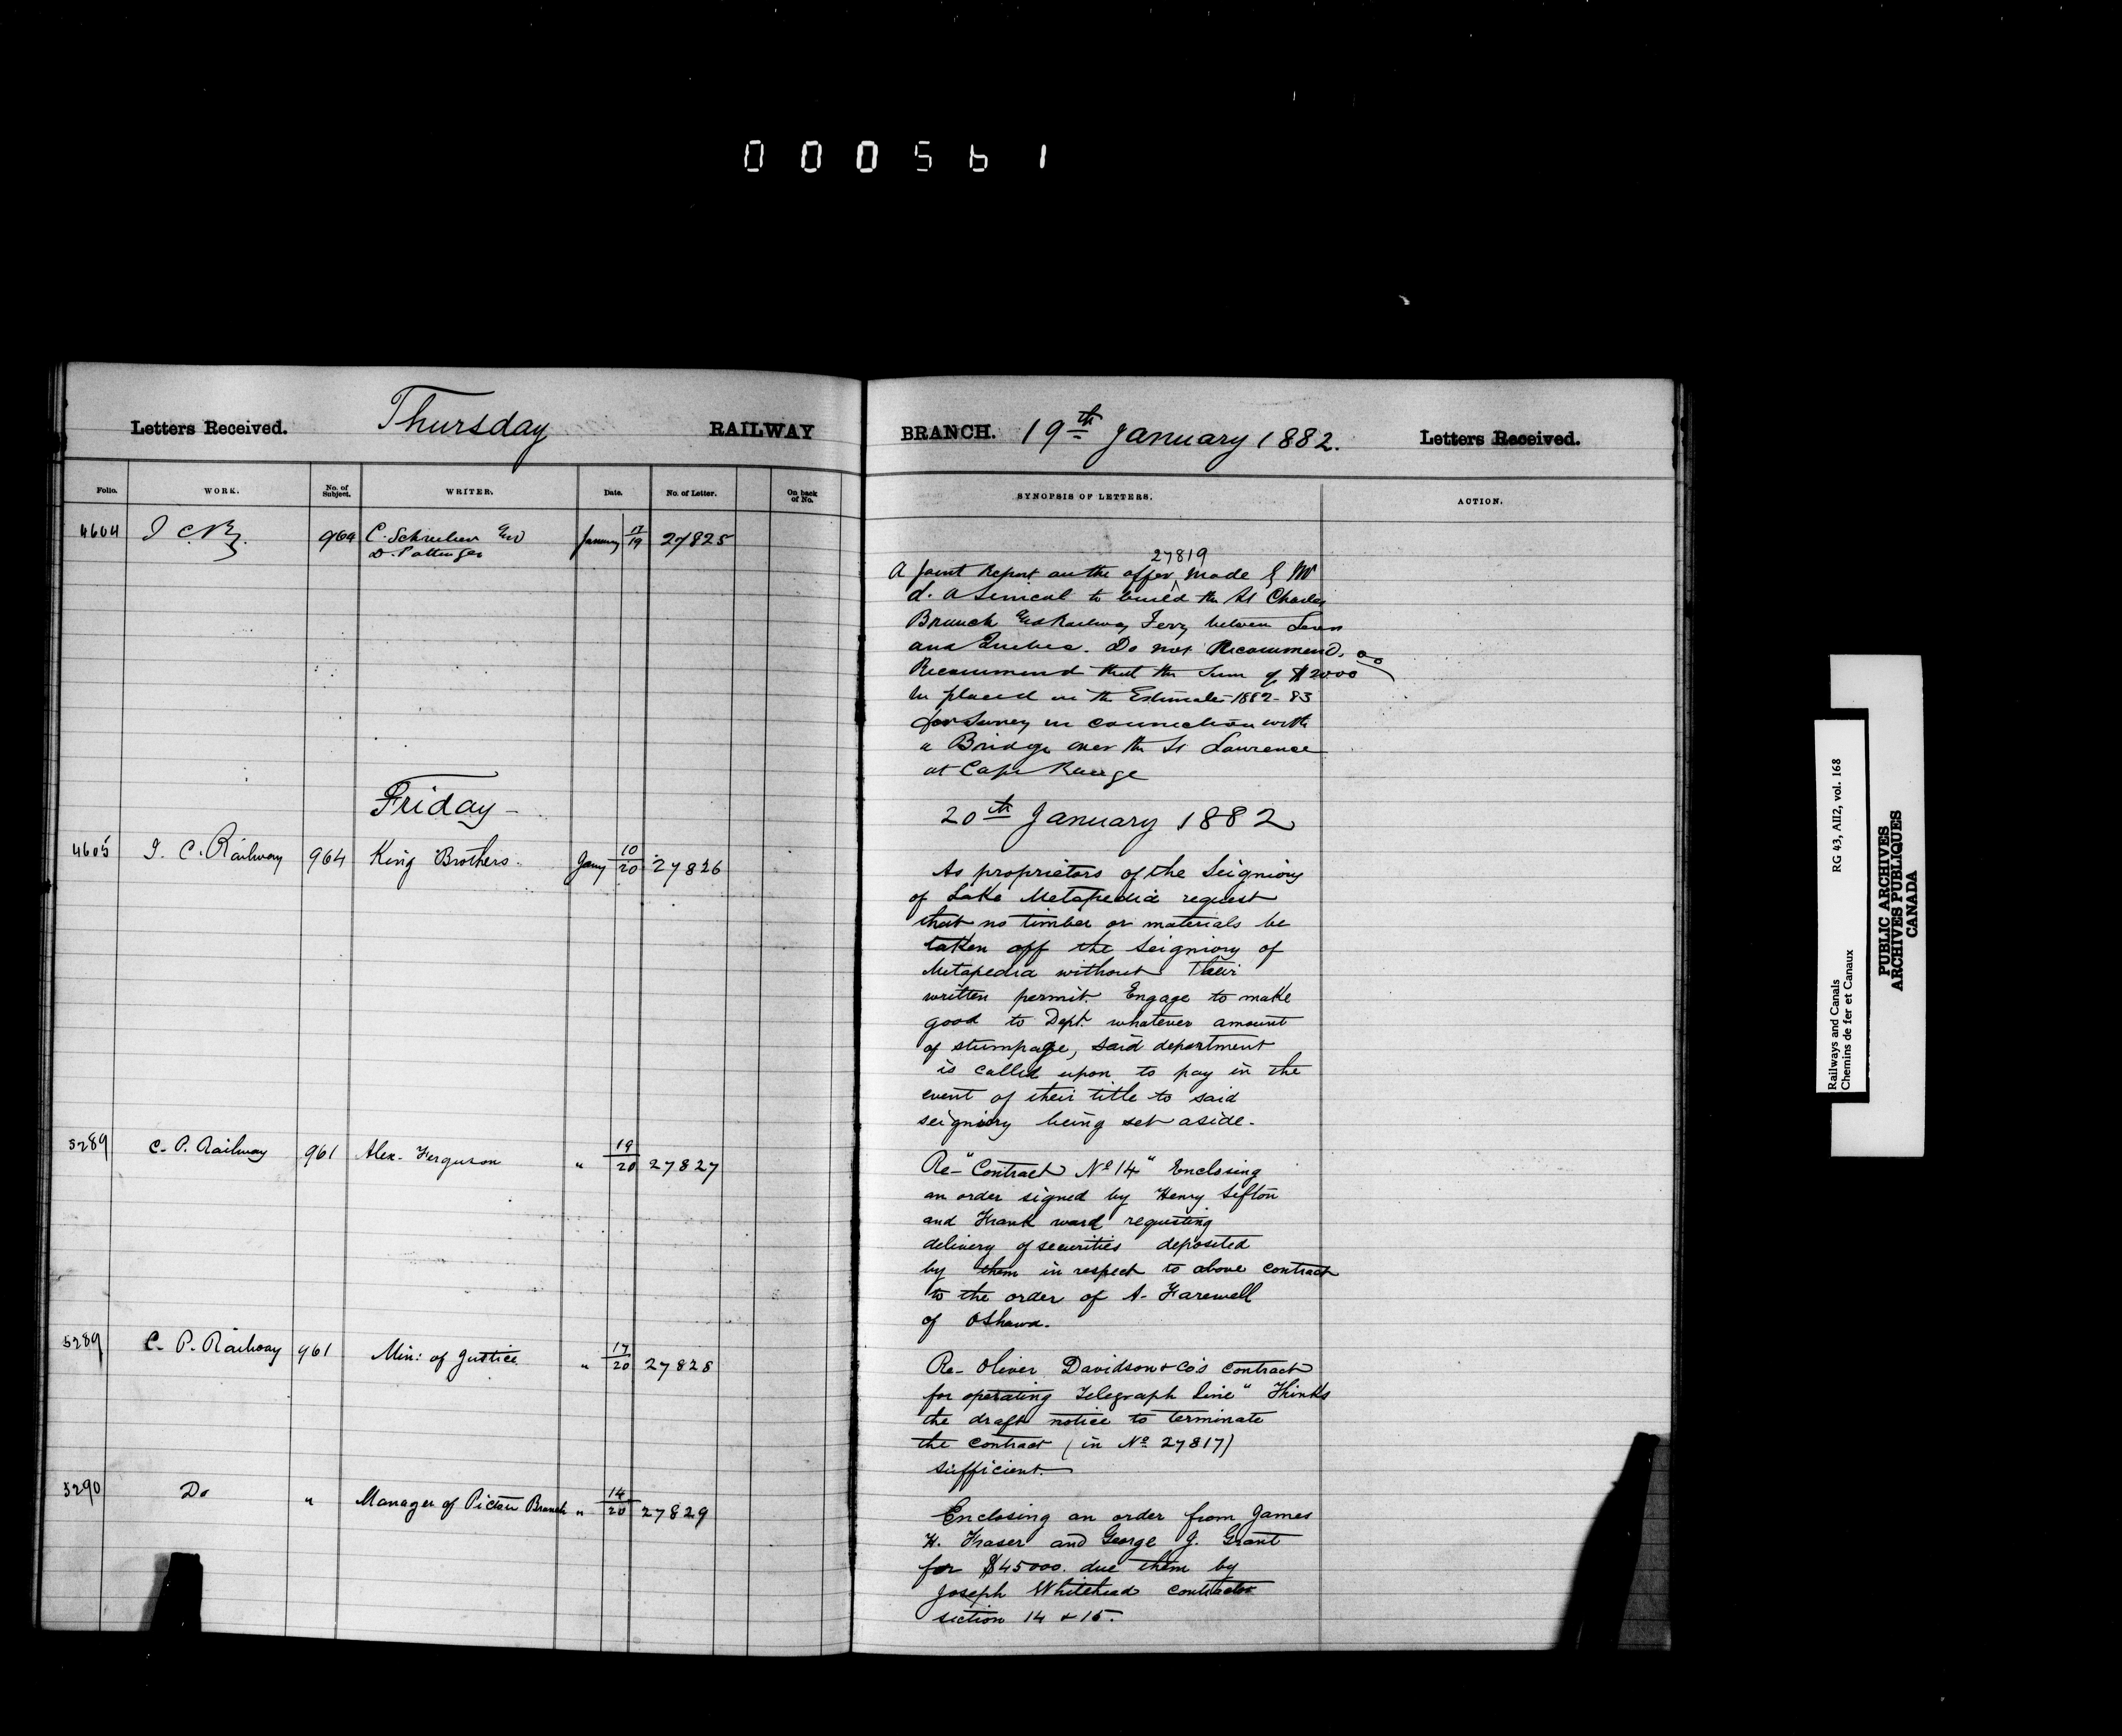 000561
Letters Received. Thursday RAILWAY BRANCH. 19th January 1882. Letters Received.
Folio. WORK. No. of Subject. WRITER. Date. No. of Letter. On back of No. SYNOPSIS OF LETTERS. ACTION.
4604 I C Ry. 964 C. Schreiber and January 17/19 27825
D. Pottinger
27819
A Joint Report on the offer made by Mr
to build the St Charles
Branch and Railway Ferry between Levis
and Quebec. Do not Recommend.
Recommend that the Sum of $2000
be placed in the Estimates 1882-83
for Survey in connection with
a Bridge over the St Lawrence
at Cap Rouge
Friday - 20th January 1882
4605 I. C. Railway 964 King Brothers. Jany 10/20 27826
As proprietors of the Seigniory
of Lake Metapedia request
that no timber or materials be
taken off the Seigniory of
Metapedia without their
written permit. Engage to make
good to Dept. whatever amount
of stumpage, said department
is called upon to pay in the
event of their title to said
seigniory being set aside.
5289 C. P. Railway 961 Alex. Ferguson " 19/20 27827
Re- "Contract No 14" Enclosing
an order signed by Henry Sifton
and Frank ward requesting
delivery of securities deposited
by them in respect to above contract
to the order of A. Farewell
of Oshawa.
5289 C. P. Railway 961 Min: of Justice " 17/20 27828
Re- Oliver Davidson & Co's contract
for operating Telegraph line" Thinks
the draft notice to terminate
the contract (in No 27817)
sufficient.
5290 Do " Manager of Pictou Branch " 14/20 27829
Enclosing an order from James
H. Fraser and George J. Grant
for $45000. due them by
Joseph Whitehead contractor
section 14 & 15.
Railways and Canals RG 43, AII2, vol. 168
Chemins de fer et Canaux
PUBLIC ARCHIVES
ARCHIVES PUBLIQUES
CANADA